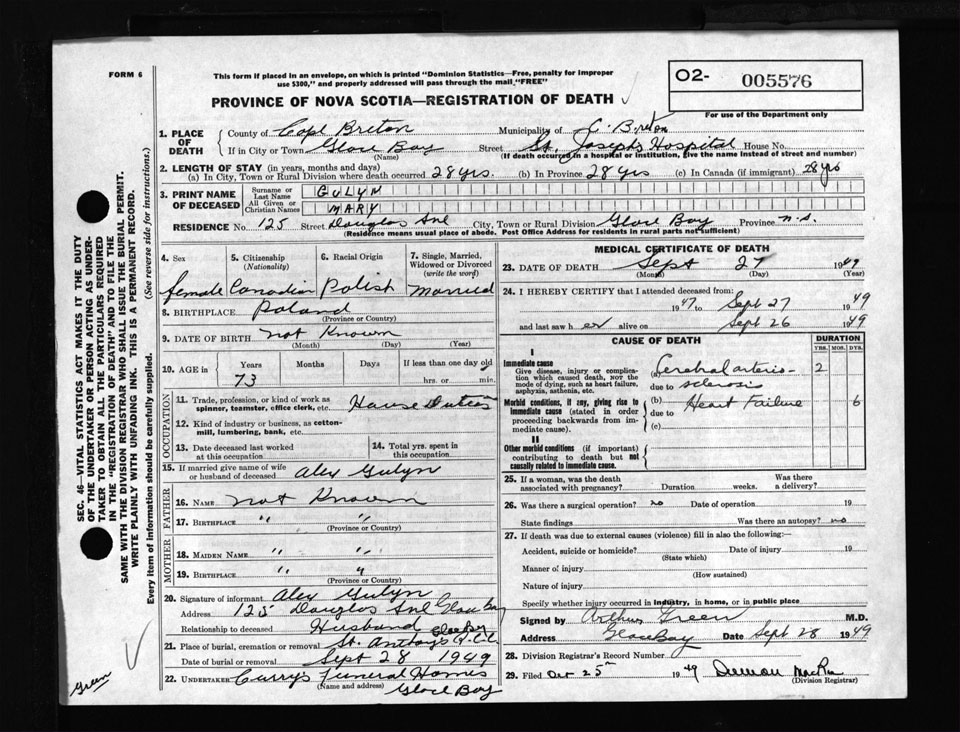 FORM 6
This form if placed in an envelope, on which is printed "Dominion Statistics—Free, penalty for improper
use $300," and properly addressed will pass through the mail "FREE"
PROVINCE OF NOVA SCOTIA—REGISTRATION OF DEATH
O2- 005576
For use of the Department only
1. PLACE OF DEATH County of Cape Breton Municipality of C. Breton
If in City or Town Glace Bay (Name) Street St. Josephs Hospital House No.
(If death occurred in a hospital or institution, give the name instead of street and number)
2. LENGTH OF STAY (in years, months and days)
(a) In City, Town or Rural Division where death occurred 28 yrs. (b) In Province 28 yrs (c) In Canada (if immigrant) 28 yrs
3. PRINT NAME OF DECEASED Surname or Last Name GULYN
All Given or Christian Names MARY
RESIDENCE No. 125 Street Douglas Ave City, Town or Rural Division Glace Bay Province n.s.
(Residence means usual place of abode. Post Office Address for residents in rural parts not sufficient)
4. Sex female
5. Citizenship (Nationality) Canadian
6. Racial Origin Polish
7. Single, Married, Widowed or Divorced (write the word) Married
8. BIRTHPLACE Poland
(Province or Country)
9. DATE OF BIRTH not Known
(Month) (Day) (Year)
10. AGE in Years 73 Months Days If less than one day old hrs. or min.
OCCUPATION
11. Trade, profession, or kind of work as spinner, teamster, office clerk, etc. House Duties
12. Kind of industry or business, as cotton-mill, lumbering, bank, etc.
13. Date deceased last worked at this occupation
14. Total yrs. spent in this occupation
15. If married give name of wife or husband of deceased Alex Gulyn
FATHER
16. NAME not Known
17. BIRTHPLACE " "
(Province or Country)
MOTHER
18. MAIDEN NAME " "
19. BIRTHPLACE " "
(Province or Country)
20. Signature of informant Alex Gulyn
Address 125 Douglas Ave Glace Bay
Relationship to deceased Husband
21. Place of burial, cremation or removal St. Anthonys R.C.C. Glace Bay
Date of burial or removal Sept 28 1949
22. UNDERTAKER Currys Funeral Homes
(Name and address) Glace Bay
MEDICAL CERTIFICATE OF DEATH
23. DATE OF DEATH Sept 27 1949
(Month) (Day) (Year)
24. I HEREBY CERTIFY that I attended deceased from:
1947 to Sept 27 1949
and last saw her alive on Sept 26 1949
CAUSE OF DEATH
DURATION
YRS. MOS. DYS.
I
Immediate cause
Give disease, injury or complication which caused death, NOT the mode of dying, such as heart failure, asphyxia, asthenia, etc.
(a) Cerebral arterio- 2
due to sclerosis
Morbid conditions, if any, giving rise to immediate cause (stated in order proceeding backwards from immediate cause).
(b) Heart Failure 6
due to
(c)
II
Other morbid conditions (if important) contributing to death but not causally related to immediate cause.
25. If a woman, was the death associated with pregnancy? Duration weeks. Was there a delivery?
26. Was there a surgical operation? no Date of operation 19
State findings Was there an autopsy? no
27. If death was due to external causes (violence) fill in also the following:—
Accident, suicide or homicide? Date of injury 19
(State which)
Manner of injury
(How sustained)
Nature of injury
Specify whether injury occurred in industry, in home, or in public place
Signed by Arthur Green M.D.
Address Glace Bay Date Sept 28 1949
28. Division Registrar's Record Number
29. Filed Oct 25 1949
(Division Registrar)
SEC. 46—VITAL STATISTICS ACT MAKES IT THE DUTY
OF THE UNDERTAKER OR PERSON ACTING AS UNDERTAKER TO OBTAIN ALL THE PARTICULARS REQUIRED
IN THE "REGISTRATION OF DEATH" AND TO FILE THE
SAME WITH THE DIVISION REGISTRAR WHO SHALL ISSUE THE BURIAL PERMIT.
WRITE PLAINLY WITH UNFADING INK. THIS IS A PERMANENT RECORD.
Every item of information should be carefully supplied. (See reverse side for instructions.)
Green